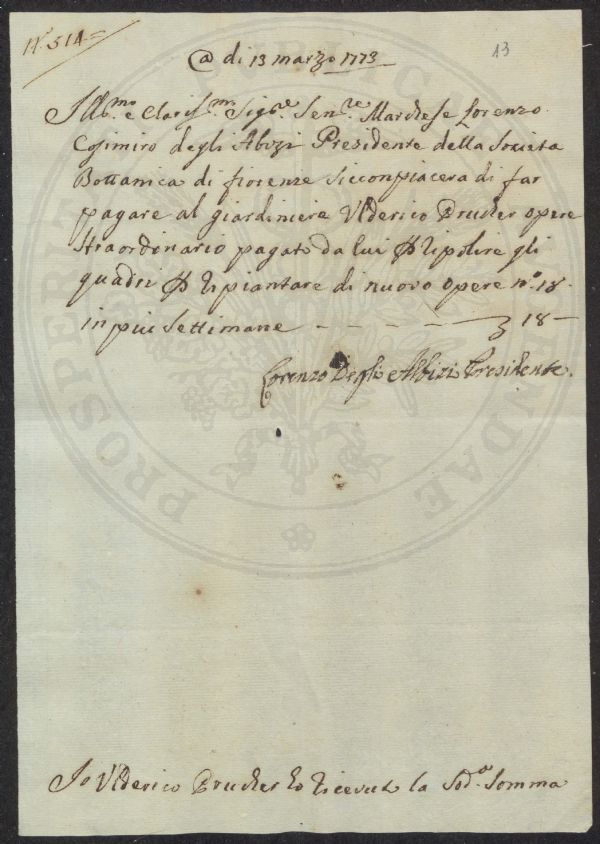 N.° 514=
13
@ di 13 marzo 1773
Ill.mo e Clariss.mo Sig.re Sen.re Marchese Lorenzo
Cosimiro degli Abizi Presidente della Societa
Bottanica di fiorenze si compiacera di far
pagare al giardiniere Ulderico Prucher opere
straordinario pagato da lui P ripolire gli
quadri P ripiantare di nuovo opere n.° 18
in piu settimane - - - - - 18 -
Lorenzo Degli Albizi Presidente.
Io Ulderico Prucher ho ricevuto la Sod.a Somma
PROSPERITATI PUBLICAE AUGENDAE